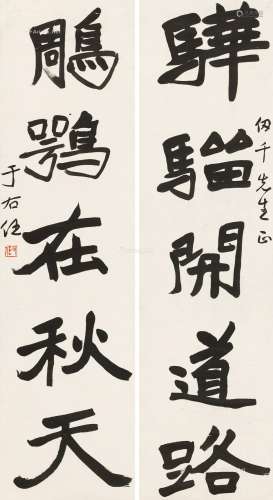 驊騮開道路
伯千先生正
鵰鶚在秋天
于右任